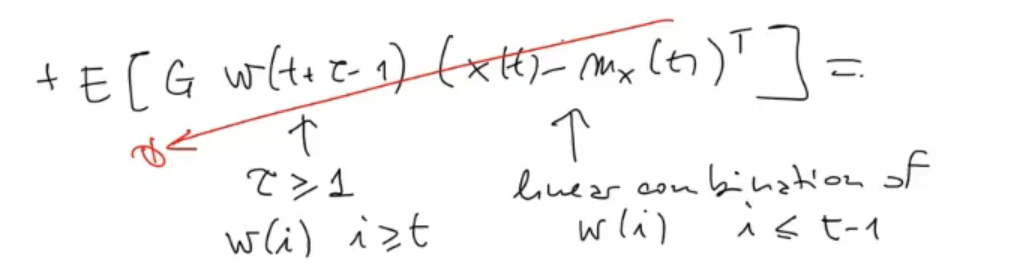 + E [ G w(t+τ-1) (x(t) - m_x(t))^T ] =
0
↑ ↑
τ ≥ 1 linear combination of
w(i) i ≥ t w(i) i ≤ t-1